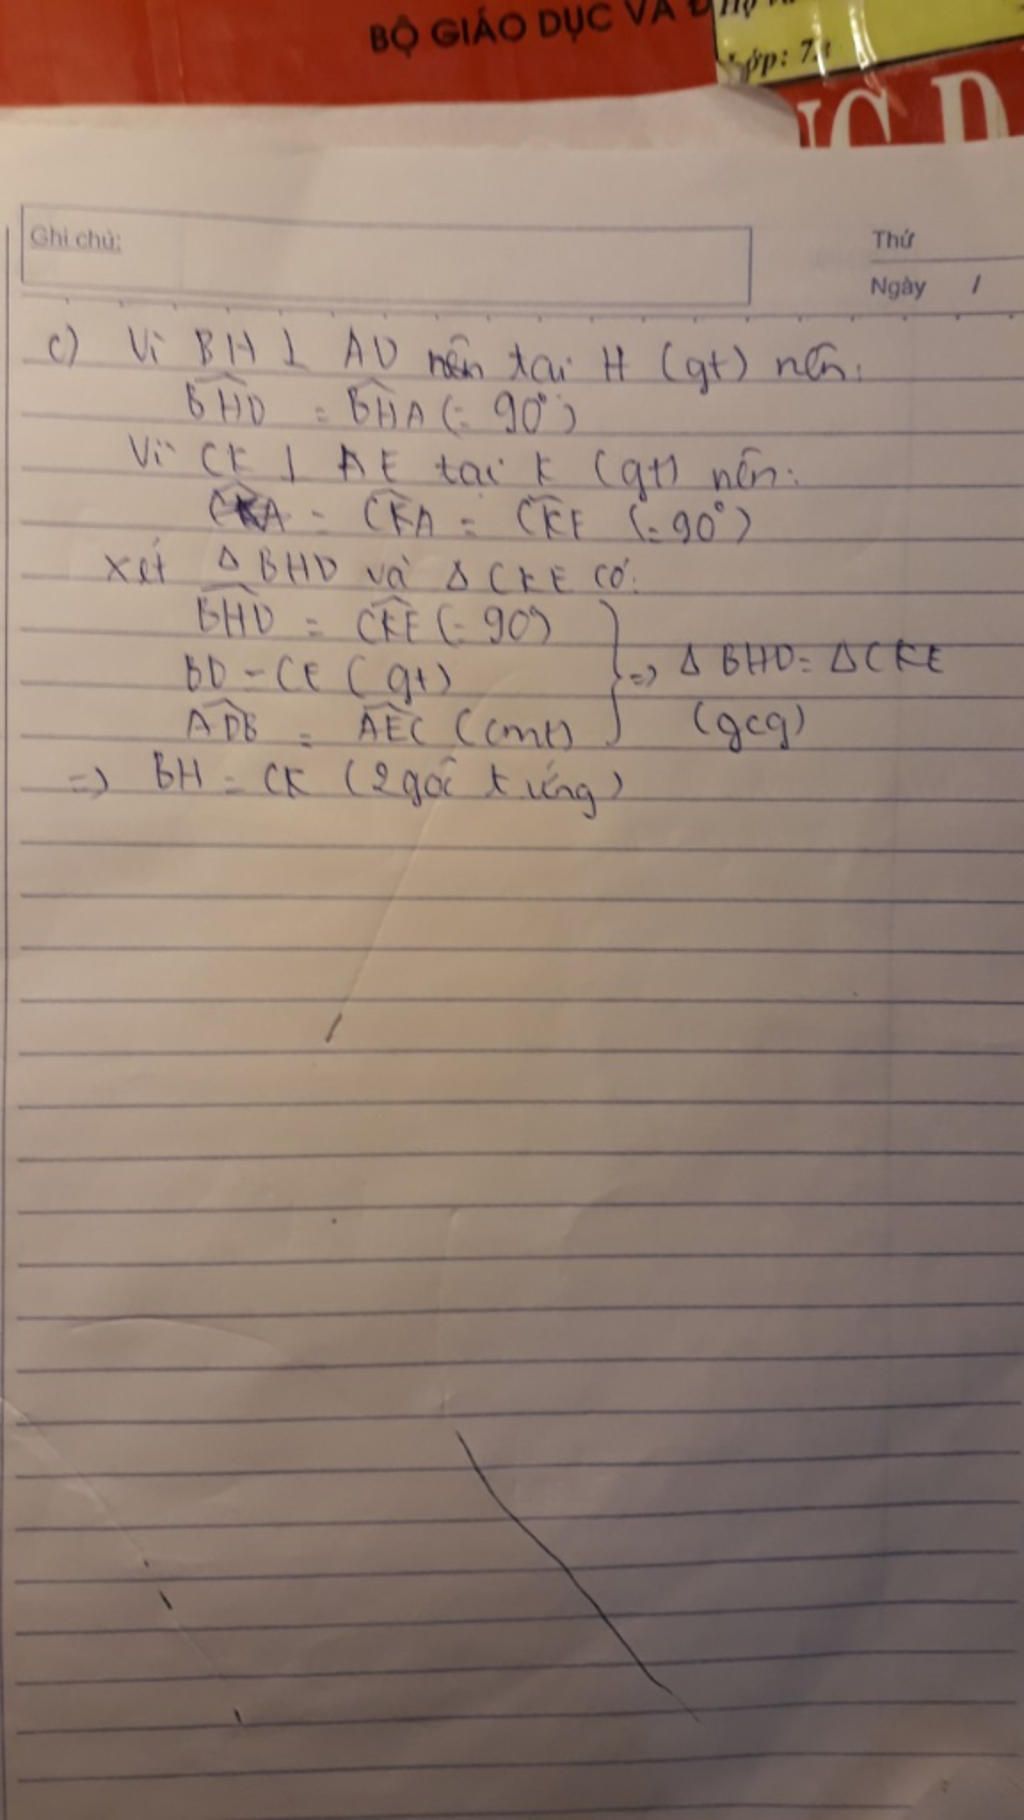 BỘ GIÁO DỤC VÀ Đ
Lớp: 7
NG D
Ghi chú:
Thứ
Ngày /
c) Vì BH ⊥ AD nên tại H (gt) nên:
BHD = BHA (= 90°)
Vì CK ⊥ AE tại K (gt) nên:
CKA = CKA = CKE (= 90°)
Xét Δ BHD và Δ CKE có:
BHD = CKE (= 90°)
BD = CE (gt)
ADB = AEC (cmt)
=> Δ BHD = Δ CKE
(gcg)
=> BH = CK (2 góc t ứng)